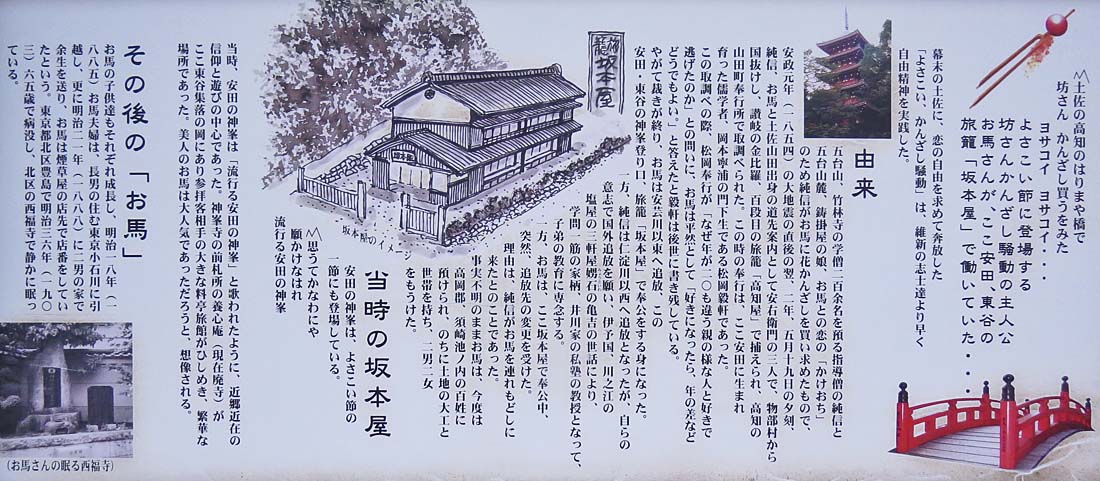 〽土佐の高知のはりまや橋で
坊さん かんざし買うをみた
ヨサコイ ヨサコイ・・・
よさこい節に登場する
坊さんかんざし騒動の主人公
お馬さんが、ここ安田、東谷の
旅籠「坂本屋」で働いていた・・・・・
幕末の土佐に、恋の自由を求めて奔放した
「よさこい、かんざし騒動」は、維新の志士達より早く
自由精神を実践した。
由来
五台山、竹林寺の学僧二百余名を預る指導僧の純信と
五台山麓、鋳掛屋の娘、お馬との恋の「かけおち」
のため純信がお馬に花かんざしを買い求めたもので、
安政元年(一八五四)の大地震の直後の翌、二年、五月十九日の夕刻、
純信、お馬と土佐山田出身の道先案内として安右衛門の三人で、物部村から
国抜けし、讃岐の金比羅、百段目の旅籠「高知屋」で捕えられ、高知の
山田町奉行所で取調べられた。この時の奉行は、ここ安田に生まれ
育った儒学者、岡本寧浦の門下生である松岡毅軒であった。
この取調べの際、松岡奉行が「なぜ年が二〇も違う親の様な人と好きで
逃げたのか」との問いに、お馬は平然として「好きになったら、年の差など
どうでもよい。」と答えたと毅軒は後世に書き残している。
やがて裁きが終り、お馬は安芸川以東へ追放、この
安田・東谷の神峯登り口、旅籠、「坂本屋」で奉公をする身になった。
一方、純信は仁淀川以西へ追放となったが、自らの
意志で国外追放を願い、伊予国、川之江の
塩屋の三軒屋娚石の亀吉の世話により、
学問一筋の家柄、井川家の私塾の教授となって、
子弟の教育に専念する。
一方、お馬は、ここ坂本屋で奉公中、
突然、追放先の変更を受けた。
理由は、純信がお馬を連れもどしに
来たとのことであった。
事実不明のままお馬は、今度は
高岡郡、須崎池ノ内の百姓に
預けられ、のちに土地の大工と
世帯を持ち、二男二女
をもうけた。
旅籠 坂本屋
坂本屋
坂本屋のイメージ
当時の坂本屋
安田の神峯は、よさこい節の
一節にも登場している。
〽思うてかなわにゃ
願かけなはれ
流行る安田の神峯
当時、安田の神峯は「流行る安田の神峯」と歌われたように、近郷近在の
信仰と遊びの中心であった。神峯寺の前札所の養心庵(現在廃寺)が
ここ東谷集落の岡にあり参拝客相手の大きな料亭旅館がひしめき、繁華な
場所であった。美人のお馬は大人気であっただろうと、想像される。
その後の「お馬」
お馬の子供達もそれぞれ成長し、明治一八年(一
八八五)お馬夫婦は、長男の住む東京小石川に引
越し、更に明治二一年(一八八八)に二男の家で
余生を送り、お馬は煙草屋の店先で店番をしてい
たという。東京都北区豊島で明治三六年(一九〇
三)六五歳で病没し、北区の西福寺で静かに眠っ
ている。
(お馬さんの眠る西福寺)